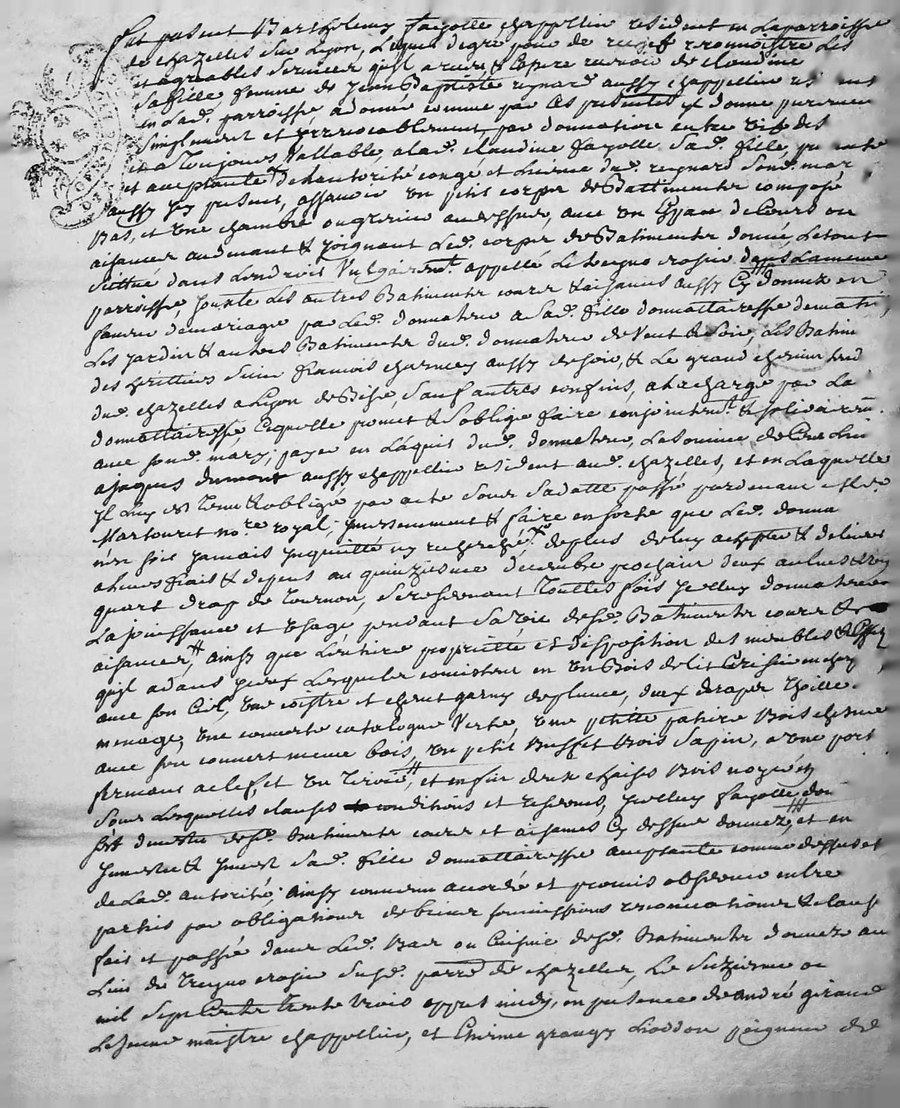 fut présent Barthelemy fayolle chappellier résident en La parroisse
de chazelles sur Lyon, Lequel de gré pour de reconnoistre Les
et agreables services qu'il a receu & espere recevoir de claudine
sa fille femme de Jean Baptiste reynard aussy chappellier
en lad. parroisse, a donné comme par ces presentes il donne purement
simplement et irrevocablement par donnation entre vifs des
a Toujours Vallable, a lad. claudine fayolle sad. fille,
et acceptante de l'authorité congé et Licence dud. reynard sond. mary
aussy icy present, assavoir un petit corps de Battiments composé
Bas, et une chambre ou grenier au dessus, avec un de Cours ou
aisances au devant & joignant Led. corps de Batiments donné, Le tout
scittué dans Lendroit Vulgairemt. appellé Le treyno rosin dans La meme
parroisse, jouste Les autres Batiments cours & aisances aussy cy donnez en
faveur de mariage par Led. donnateur a sad. fille donnattairesse de matin
Les jardin & autres Batiments dud. donnateur de Vent & soir, Les Batim
des herittiers françois aussy de soir, & Le grand chemin tend
dud. chazelles a Lyon de Bise, sauf autres confins, a la charge par La
donnattairesse Laquelle promet & s'oblige faire conjointemt. & solidairem.
avec sond. mary, payer en L'aquit dud. donnateur, La somme de
a jaques dumont aussy chappellier résident aud. chazelles, et en Laquelle
il Luy est Tenu & obligé par acte sous sa datte passé pardevant
Martouret no.re royal, & faire en sorte que Led. donna
n'en soit jamais inquiétté ny recherché, de plus de luy achepter & delivrer
a leurs frais & depens au quinziesme decembre prochain deux aulnes &
quart drap de Tournon, se reservant Touttes fois icelluy donnateur
La jouissance et Usage pendant sa vie desd. Batiments cours &
aisances, ainsy que L'entiere proprietté et disposition des meubles & effets
qu'il a dans iceux Lesquels consistent en un Bois de lit Cerisier
avec son Ciel, une coittre et chevet garny de plume, deux draps Thoille
menage, une couverte catalogne Verte, une petitte patiere Bois chesne
avec son couvert meme bois, un petit Buffet Bois sapin, a une port
fermant a clef, et un Tiroir, et enfin deux chaises Bois noyer
sous Lesquelles clauses conditions et reserves, icelluy fayolle
s'est demettu desd. Batiments cours et aisances cy dessus donnez, et en
investit & sad. fille donnattairesse acceptante comme dessus et
de Lad. autorité, ainsy convenu accordé et promis observer entre
parties par obligations de biens soumissions renonciations & claus
fait et passé dans Led. Bas ou Cuisine desd. Batiments donnez au
Lieu du Treyno rosin susd. parre. de chazelles, Le
mil sept Cents trente trois appres midy, en presence de andré giraud
Le jeune maistre chappellier, et Estienne grangy peigneur de